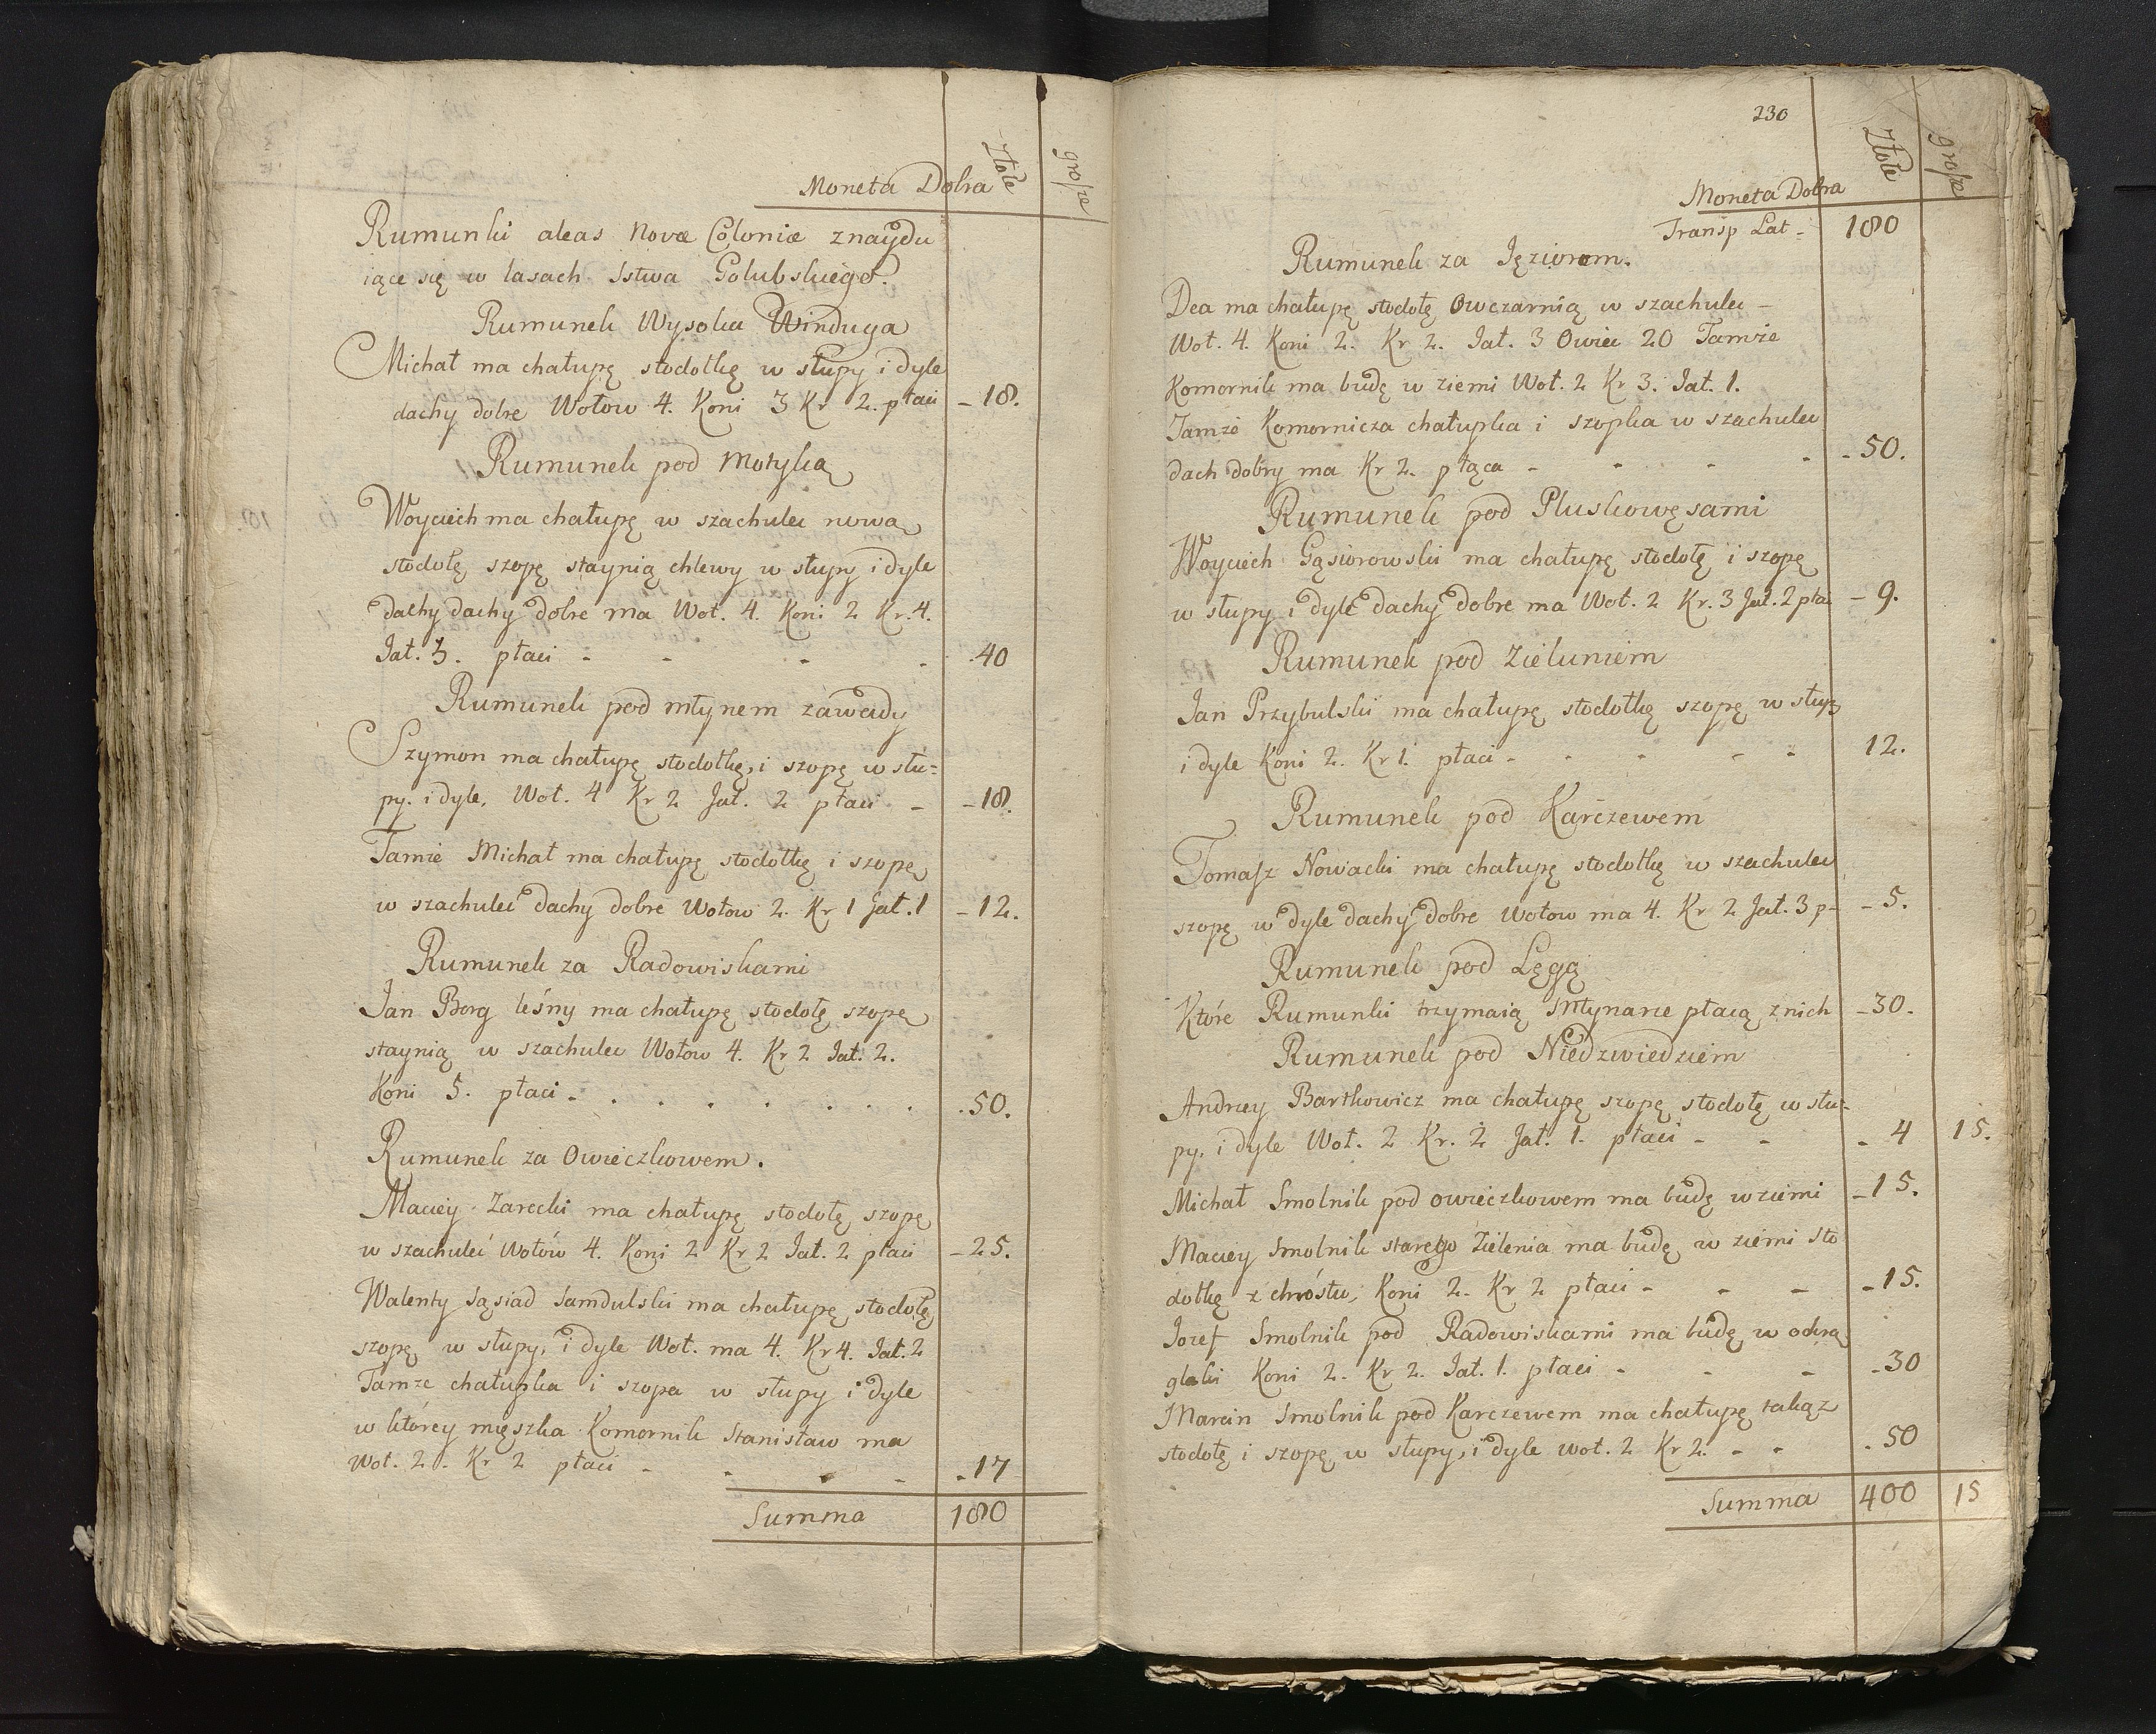 Moneta Dobra
złote
grosze
Rumunki aleas Novæ Coloniæ znaydu
iące się w lasach Sstwa Golubskiego.
Rumunek Wysoka Winduga
Michał ma chałupę stodołkę w słupy i dyle
dachy dobre Wołow 4. Koni 3 Kr 2. płaci - 18.
Rumunek pod Motyką
Woyciech ma chałupę w szachulec nową
stodołę szopę staynią chlewy w słupy i dyle
dachy dachy dobre ma Woł. 4. Koni 2 Kr. 4.
Jał. 3. płaci - - - - 40
Rumunek pod młynem zawady
Szymon ma chałupę stodołkę, i szopę w słu=
py. i dyle, Woł. 4 Kr 2 Jał. 2 płaci - - 18.
Tamże Michał ma chałupę stodołkę i szopę
w szachulec dachy dobre Wołow 2. Kr 1 Jał. 1 - 12.
Rumunek za Radowiskami
Jan Borg leśny ma chałupę stodołę szopę
staynią w szachulec Wołow 4. Kr 2 Jał. 2.
Koni 5. płaci - . . . . . . . 50.
Rumunek za Owieczkowem.
Maciey Zarecki ma chałupę stodołę szopę
w szachuleć Wołów 4. Koni 2 Kr 2 Jał. 2 płaci - 25.
Walenty Sąsiad Samdulski ma chałupę stodołę
szopę w słupy, i dyle Woł. ma 4. Kr 4. Jał. 2
Tamze chałupka i szopa w słupy i dyle
w którey mięszka Komornik Stanisław ma
Woł. 2. Kr 2 płaci - - - - 17
Summa 180
230
złote
grosze
Moneta Dobra
Transp Lat - 180
Rumunek za Jęziorem.
Dea ma chałupę stodołę Owczarnią w szachulec -
Woł. 4. Koni 2. Kr 2. Jał. 3 Owiec 20 Tamże
Komornik ma budę w ziemi Woł. 2 Kr 3. Jał. 1.
Tamże Komornicza chałupka i szopka w szachulec
dach dobry ma Kr 2. płąca - - - - - 50.
Rumunek pod Pluskowęsami
Woyciech Gąsiorowski ma chałupę stodołę i szopę
w słupy i dyle dachy dobre ma Woł. 2 Kr. 3 Jał. 2 płac - 9.
Rumunek pod Zieluniem
Jan Przybulski ma chałupę stodołkę szopę w słupy
i dyle Koni 2. Kr 1. płaci - - - - - 12.
Rumunek pod Karczewem
Tomasz Nowacki ma chałupę stodołkę w szachulec
szopę w dyle dachy dobre Wołow ma 4. Kr 2 Jał. 3 p- - 5.
Rumunek pod Lęgą
Które Rumunki trzymaią Młynarze płacą z nich - 30.
Rumunek pod Niedzwiedziem
Andrzey Bartkowicz ma chałupę szopę stodołę w słu-
py. i dyle Woł. 2 Kr. 2 Jał. 1. płaci - - - 4 15.
Michał Smolnik pod owieczkowem ma budę w ziemi - 15.
Maciey Smolnik starego Zielenia ma budę w ziemi sto
dołkę z chróstu, Koni 2. Kr 2 płaci - - - - 15.
Jozef Smolnik pod Radowiskami ma budę w okrą
glaki Koni 2. Kr 2. Jał. 1. płaci - - - - 30
Marcin Smolnik pod Karczewem ma chałupę takąż
stodołę i szopę w słupy, i dyle woł. 2 Kr 2. - - . 50
Summa 400 15